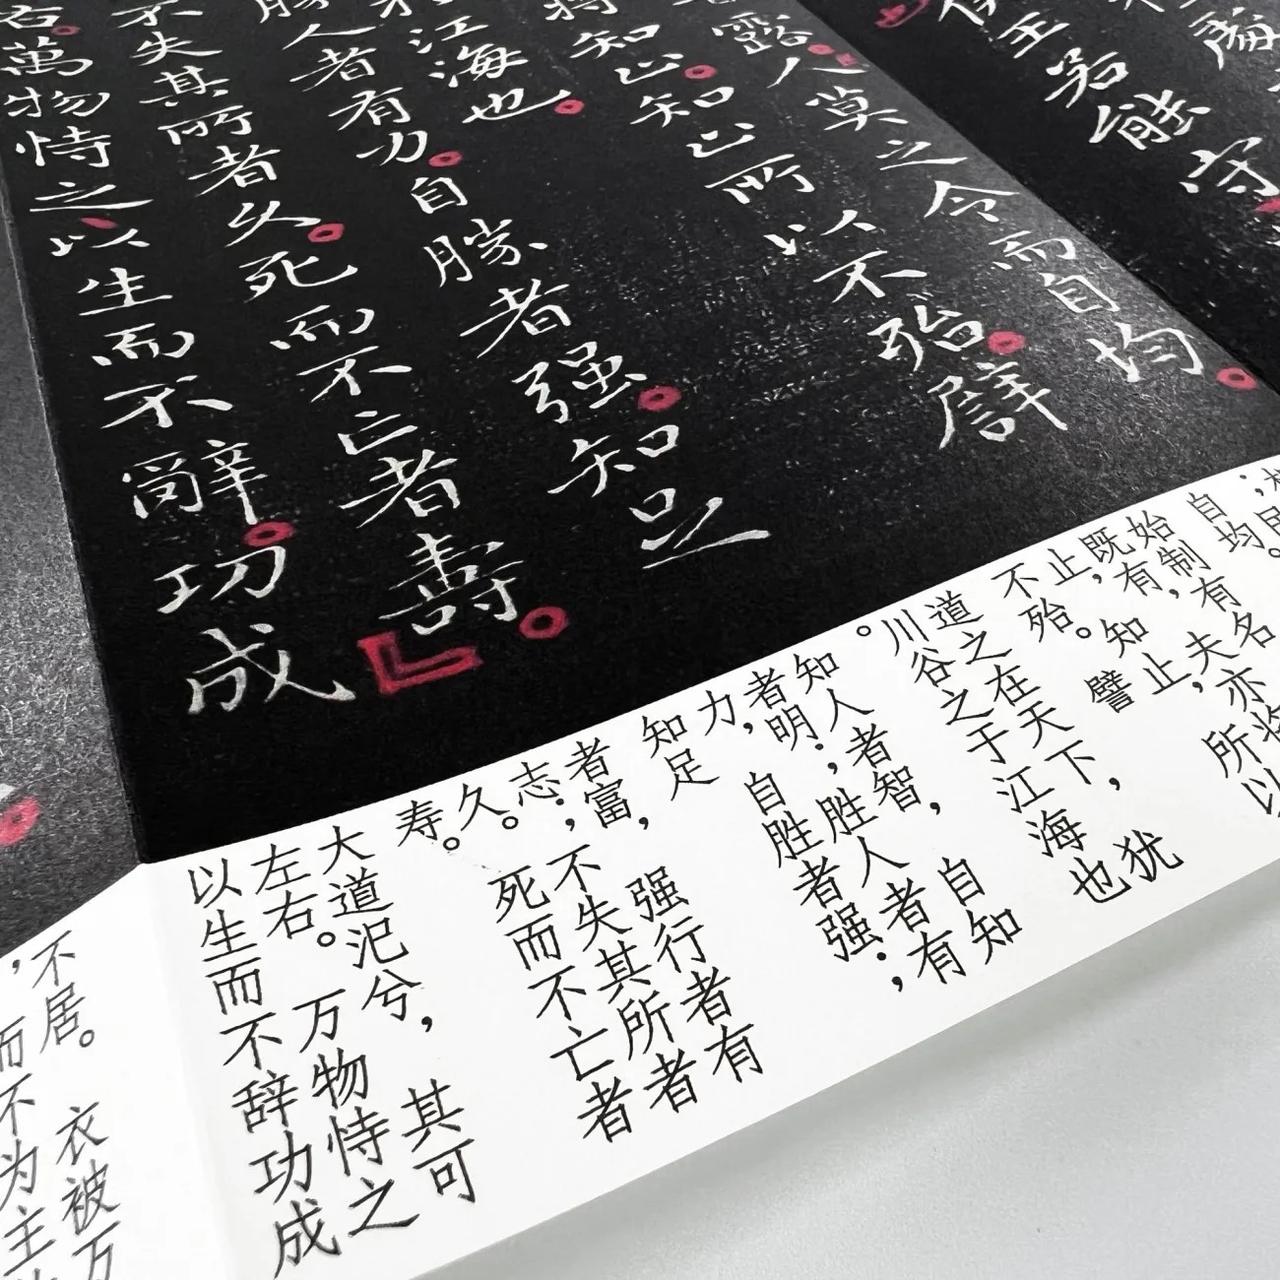 侯王若能守
露。人莫之令而自均。
將知止。知止所以不殆。譬
江海也。
勝人者有力。自勝者强。知足
不失其所者久。死而不亡者壽。
右。萬物恃之以生而不辭。功成
自均。
始制有名
既有，夫亦将
止，知止，所以
不殆。譬
道之在天下，犹
川谷之于江海也
。
知人者智，自知
者明；胜人者有
力，自胜者强；
知足
者富，强行者有
志；不失其所者
久。死而不亡者
寿。
大道汜兮，其可
左右。万物恃之
以生而不辞功成
不居。衣被万
，而不为主